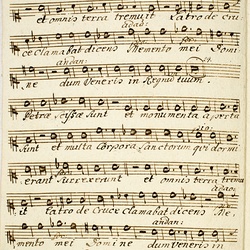 et omnis terra tremuit Latro de Cru
ce Clamabat dicens Memento mei Domi
ne dum Veneris in Regnum tuum.
Petræ cissæ sunt et monumenta aperta
Sunt et multa Corpora Sanctorum qui dormi
erant Surrexerunt et omnis terra tremu
it Latro de Cruce clamabat dicens Me.
mento mei Domine dum veneris in